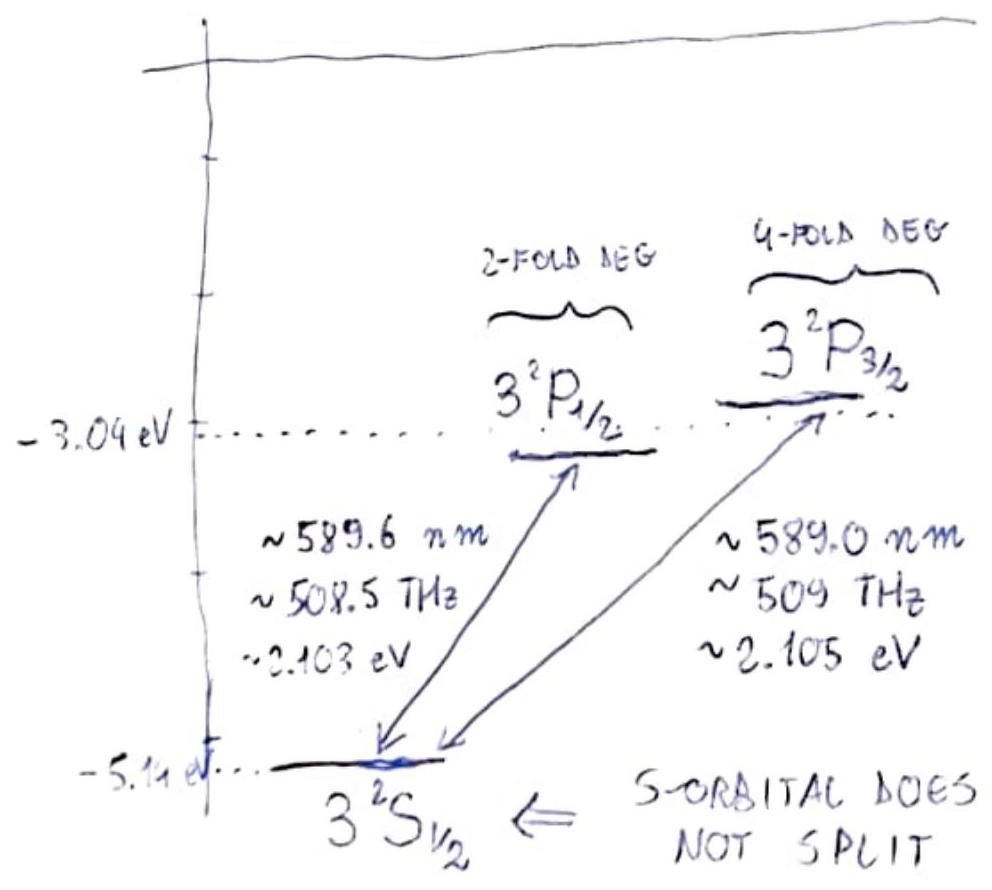 2-FOLD DEG
4-FOLD DEG
3²P₁/₂
3²P₃/₂
-3.04 eV
~589.6 nm
~508.5 THz
~2.103 eV
~589.0 nm
~509 THz
~2.105 eV
-5.14 eV
3²S₁/₂ ⇐ S-ORBITAL DOES
NOT SPLIT